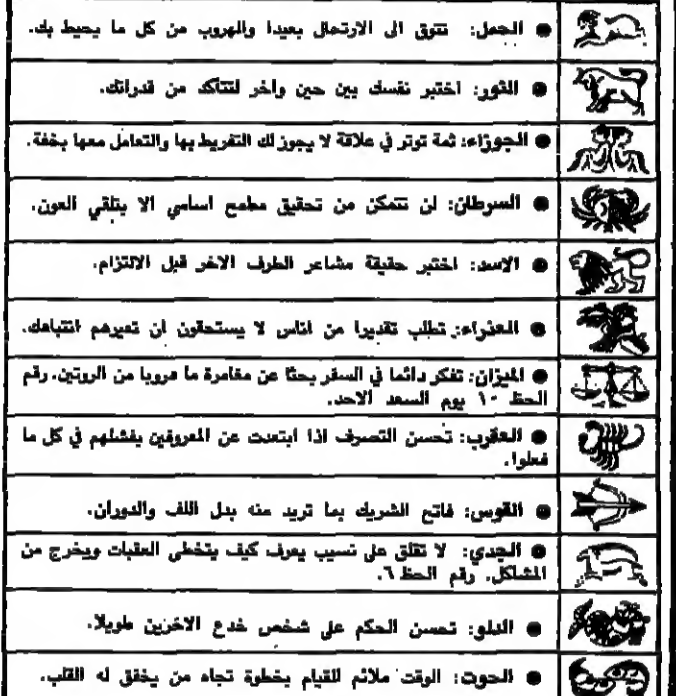 ● الحمل: تتوق الى الارتحال بعيدا والهروب من كل ما يحيط بك.
● الثور: اختبر نفسك بين حين واخر لتتاكد من قدراتك.
● الجوزاء: ثمة توتر في علاقة لا يجوز لك التفريط بها والتعامل معها بخفة.
● السرطان: لن تتمكن من تحقيق مطمح اساسي الا بتلقي العون.
● الاسد: اختبر حقيقة مشاعر الطرف الاخر قبل الالتزام.
● العذراء: تطلب تقديرا من اناس لا يستحقون ان تعيرهم انتباهك.
● الميزان: تفكر دائما في السفر بحثا عن مغامرة ما هروبا من الروتين. رقم
الحظ ١٠ يوم السعد الاحد.
● العقرب: تحسن التصرف اذا ابتعدت عن المعروفين بفشلهم في كل ما
فعلوا.
● القوس: فاتح الشريك بما تريد منه بدل اللف والدوران.
● الجدي: لا تقلق على نسيب يعرف كيف يتخطى العقبات ويخرج من
المشاكل. رقم الحظ ٦.
● الدلو: تحسن الحكم على شخص خدع الاخرين طويلا.
● الحوت: الوقت ملائم للقيام بخطوة تجاه من يخفق له القلب.